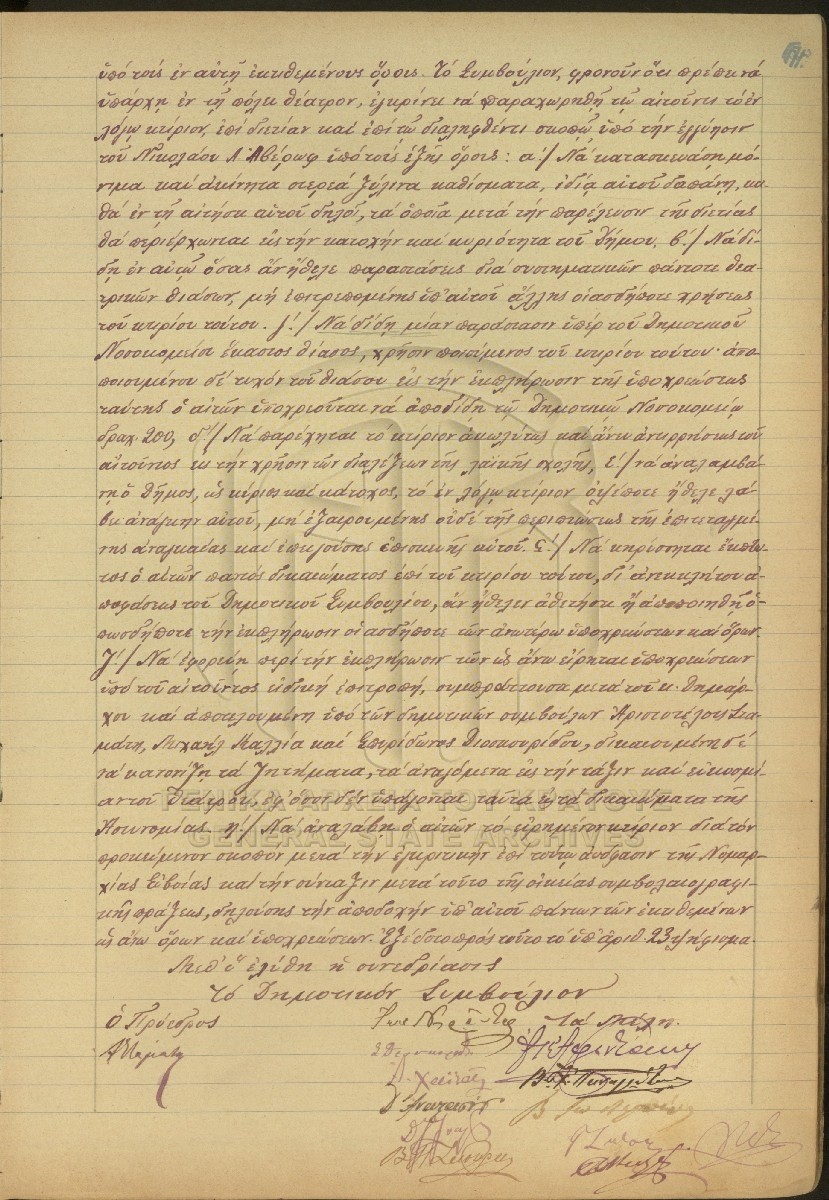 ὑπὸ τοῖς ἐν αὐτῇ ἐκτιθεμένους ὅροις. Τὸ Συμβούλιον, φρονοῦν ὅτι πρέπει νὰ
ὑπάρχῃ ἐν τῇ πόλει θέατρον, ἐγκρίνει νὰ παραχωρηθῇ τῷ αἰτοῦντι τὸ ἐν
λόγῳ κτίριον, ἐπὶ διετίαν καὶ ἐπὶ τῷ διαληφθέντι σκοπῷ ὑπὸ τὴν ἐγγύησιν
τοῦ Νικολάου Α. Ἀβέρωφ ὑπὸ τοὺς ἑξῆς ὅρους: α΄./ Νὰ κατασκευάσῃ μό-
νιμα καὶ ἀκίνητα στερεὰ ξύλινα καθίσματα, ἰδίᾳ αὐτοῦ δαπάνῃ, κα-
θὰ ἐν τῇ αἰτήσει αὐτοῦ δηλοῖ, τὰ ὁποῖα μετὰ τὴν παρέλευσιν τῆς διετίας
θὰ περιέρχωνται εἰς τὴν κατοχὴν καὶ κυριότητα τοῦ Δήμου. β΄./ Νὰ δί-
δῃ ἐν αὐτῷ ὅσας ἂν ἤθελε παραστάσεις διὰ συστηματικῶν πάντοτε θεα-
τρικῶν θιάσων, μὴ ἐπιτρεπομένης ὑπ' αὐτοῦ ἄλλης οἱασδήποτε χρήσεως
τοῦ κτιρίου τούτου. γ΄./ Νὰ δίδῃ μίαν παράστασιν ὑπὲρ τοῦ Δημοτικοῦ
Νοσοκομείου ἕκαστος θίασος, χρῆσιν ποιούμενος τοῦ κτιρίου τούτου· ἀπο-
ποιουμένου δὲ τυχὸν τοῦ θιάσου εἰς τὴν ἐκπλήρωσιν τῆς ὑποχρεώσεως
ταύτης ὁ αἰτῶν ὑποχρεοῦται νὰ ἀποδίδῃ τῷ Δημοτικῷ Νοσοκομείῳ
δραχ. 200, δ΄./ Νὰ παρέχηται τὸ κτίριον ἀκωλύτως καὶ ἄνευ ἀντιρρήσεως τοῦ
αἰτοῦντος εἰς τὴν χρῆσιν τῶν διαλέξεων τῆς λαϊκῆς σχολῆς, ε΄./ νὰ ἀναλαμβά-
νῃ ὁ Δῆμος, ὡς κύριος καὶ κάτοχος, τὸ ἐν λόγῳ κτίριον ὁτέποτε ἤθελε λά-
βει ἀνάγκην αὐτοῦ, μὴ ἐξαιρουμένης οὐδὲ τῆς περιπτώσεως τῆς ἐπιτεταγμέ-
νης ἀναγκαίας καὶ ἐπειγούσης ἐπισκευῆς αὐτοῦ. ς΄./ Νὰ κηρύσσηται ἔκπτω-
τος ὁ αἰτῶν παντὸς δικαιώματος ἐπὶ τοῦ κτιρίου τούτου, δι' ἀνεκκλήτου ἀ-
ποφάσεως τοῦ Δημοτικοῦ Συμβουλίου, ἂν ἤθελεν ἀθετήσει ἢ ἀποποιηθῇ ὁ-
πωσδήποτε τὴν ἐκπλήρωσιν οἱασδήποτε τῶν ἀνωτέρω ὑποχρεώσεων καὶ ὅρων.
ζ΄./ Νὰ ἐφορεύῃ περὶ τὴν ἐκπλήρωσιν τῶν ὡς ἄνω εἴρηται ὑποχρεώσεων
ὑπὸ τοῦ αἰτοῦντος εἰδικὴ ἐπιτροπή, συμπράττουσα μετὰ τοῦ κ. Δημάρ-
χου καὶ ἀποτελουμένη ὑπὸ τῶν δημοτικῶν συμβούλων Ἀριστοτέλους Σια-
μάτη, Μιχαὴλ Μαλλία καὶ Σπυρίδωνος Διοσκουρίδου, δικαιουμένη δὲ
νὰ κανονίζῃ τὰ ζητήματα, τὰ ἀναγόμενα εἰς τὴν τάξιν καὶ εὐκοσμί-
αν τοῦ Θεάτρου, ἐφ' ὅσον δὲν ὑπάγονται ταῦτα εἰς τὰ δικαιώματα τῆς
Ἀστυνομίας. η΄./ Νὰ ἀναλάβῃ ὁ αἰτῶν τὸ εἰρημένον κτίριον διὰ τὸν
προκείμενον σκοπὸν μετὰ τὴν ἐγκριτικὴν ἐπὶ τούτῳ ἀπόφασιν τῆς Νομαρ-
χίας Εὐβοίας καὶ τὴν σύνταξιν μετὰ τοῦτο τῆς οἰκείας συμβολαιογραφι-
κῆς πράξεως, δηλούσης τὴν ἀποδοχὴν ὑπ' αὐτοῦ πάντων τῶν ἐκτιθεμένων
ὡς ἄνω ὅρων καὶ ὑποχρεώσεων. Ἐξεδόθη πρὸς τοῦτο τὸ ὑπ' ἀριθ. 23 ψήφισμα.
Μεθ' ὃ ἐλύθη ἡ συνεδρίασις
Τὸ Δημοτικὸν Συμβούλιον
Ὁ Πρόεδρος
Τὰ Μέλη.
ΓΕΝΙΚΑ ΑΡΧΕΙΑ ΤΟΥ ΚΡΑΤΟΥΣ
GENERAL STATE ARCHIVES